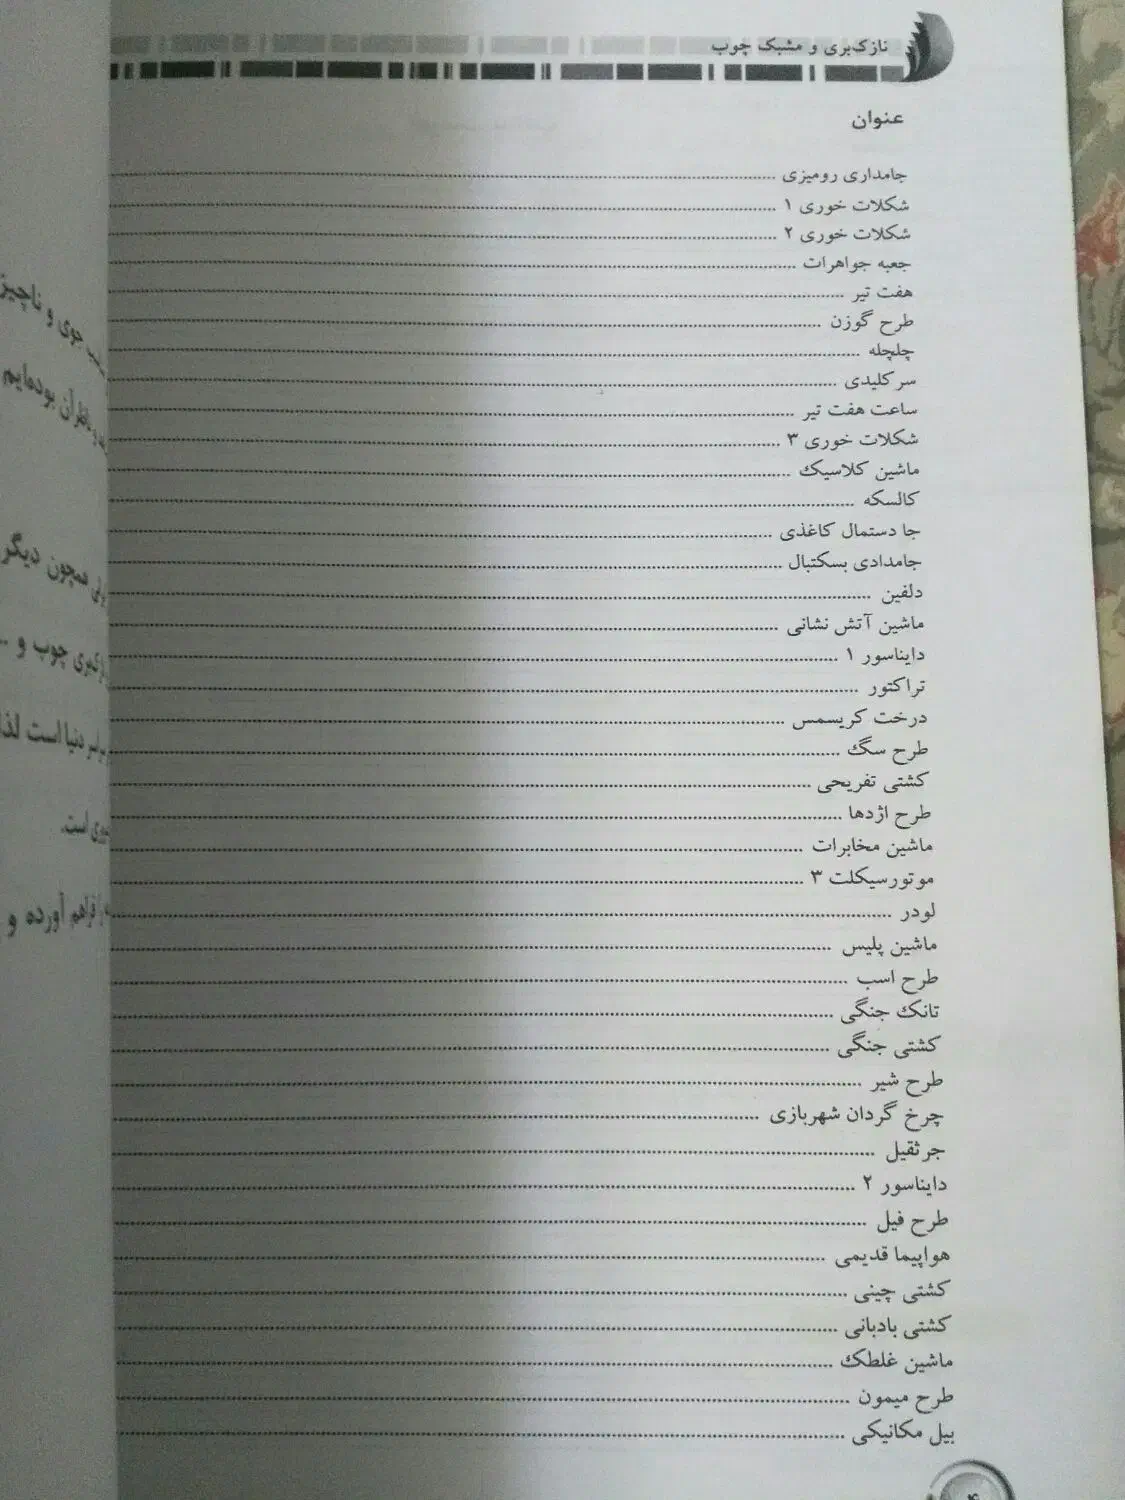 نازک‌بری و مشبک چوب
عنوان
جامدادی رومیزی
شکلات خوری ۱
شکلات خوری ۲
جعبه جواهرات
هفت تیر
طرح گوزن
چلچله
سر کلیدی
ساعت هفت تیر
شکلات خوری ۳
ماشین کلاسیک
کالسکه
جا دستمال کاغذی
جامدادی بسکتبال
دلفین
ماشین آتش نشانی
دایناسور ۱
تراکتور
درخت کریسمس
طرح سگ
کشتی تفریحی
طرح اژدها
ماشین مخابرات
موتورسیکلت ۳
لودر
ماشین پلیس
طرح اسب
تانک جنگی
کشتی جنگی
طرح شیر
چرخ گردان شهربازی
جرثقیل
دایناسور ۲
طرح فیل
هواپیما قدیمی
کشتی چینی
کشتی بادبانی
ماشین غلطک
طرح میمون
بیل مکانیکی
۴
جوی و ناچیز
آن بوده‌ایم
همچون دیگر
چوب و ...
دنیا است لذا
است.
فراهم آورده و